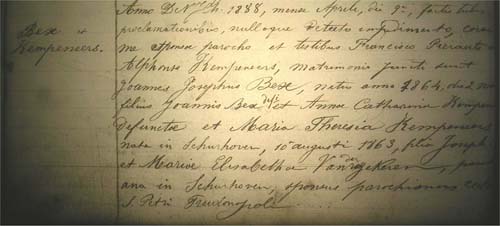 Bex et
Kempeneers.
Anno Dni 1888, mense Aprili, die 9ª, factis tribus
proclamationibus, nulloque detecto impedimento, coram
me infrascripto parocho et testibus Francisco Pierants
Alphonso Kempeneers, matrimonio juncti sunt
Joannes Josephus Bex, natus anno 1864,
filius Joannis Bex et Annae Catharina
defunctae et Maria Theresia Kempeneers
nata in Schurhoven, 10 augusti 1863, filia Joseph
et Mariae Elisabetha
ana in Schurhoven, sponsus parochianus
S. Petri Trudonopoli